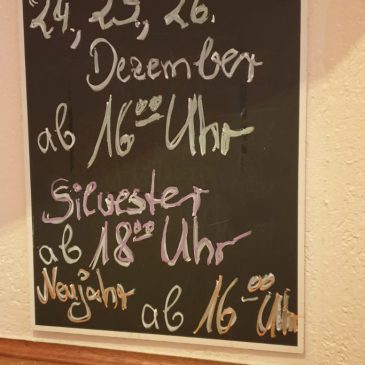 24., 25., 26.
Dezember
ab 16⁰⁰ Uhr
Silvester
ab 18⁰⁰ Uhr
Neujahr ab 16⁰⁰ Uhr